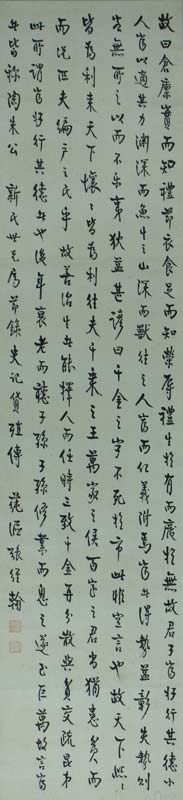 故曰倉廩實而知禮節衣食足而知榮辱禮生於有而廢於無故君子富好行其德小
人富以適其力淵深而魚生之山深而獸往之人富而仁義附焉富者得勢益彰失勢則
客無所之以而不樂夷狄益甚諺曰千金之子不死於市此非空言也故天下熙熙
皆為利來天下壤壤皆為利往夫千乘之王萬家之侯百室之君尚猶患貧而
而況匹夫編戶之民乎故善治生者能擇人而任時三致千金再分散與貧交疏昆弟
此所謂富好行其德者也後年衰老而聽子孫子孫修業而息之遂至巨萬故言富
者皆稱陶朱公 新民世兄屬節錄史記貨殖傳 蓴漚張維翰